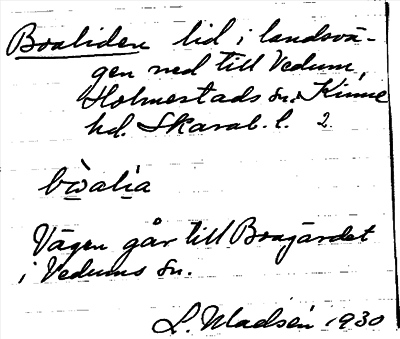 Boaliden lid i landsvä-
gen ned till Vedum,
Holmestads sn. Kinne
hd. Skarab. l. 2
bẁalia
Vägen går till Boagärdet
i Vedums sn.
L. Madsén 1930